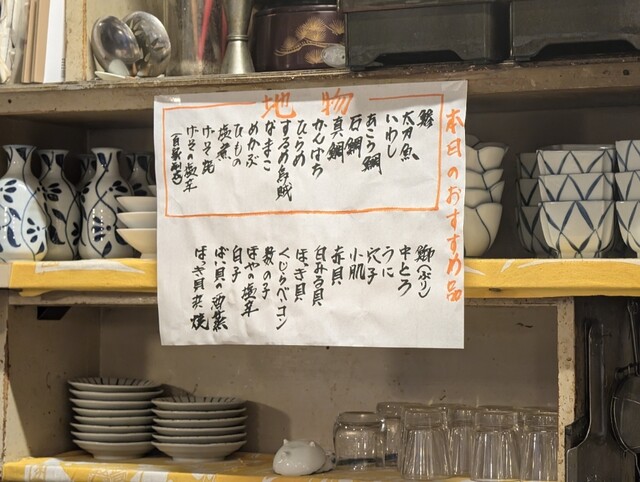 本日のおすすめ品
地物
鯵
太刀魚
いわし
あこう鯛
石鯛
真鯛
かんぱち
ひらめ
するめ烏賊
なまこ
めかぶ
ひもの
塩煮
げそ焼
げその塩辛
鰤(ぶり)
中とろ
うに
穴子
小肌
赤貝
白みる貝
ほっき貝
くじらベーコン
数の子
ほやの塩辛
白子
ばい貝の酒蒸
ほっき貝